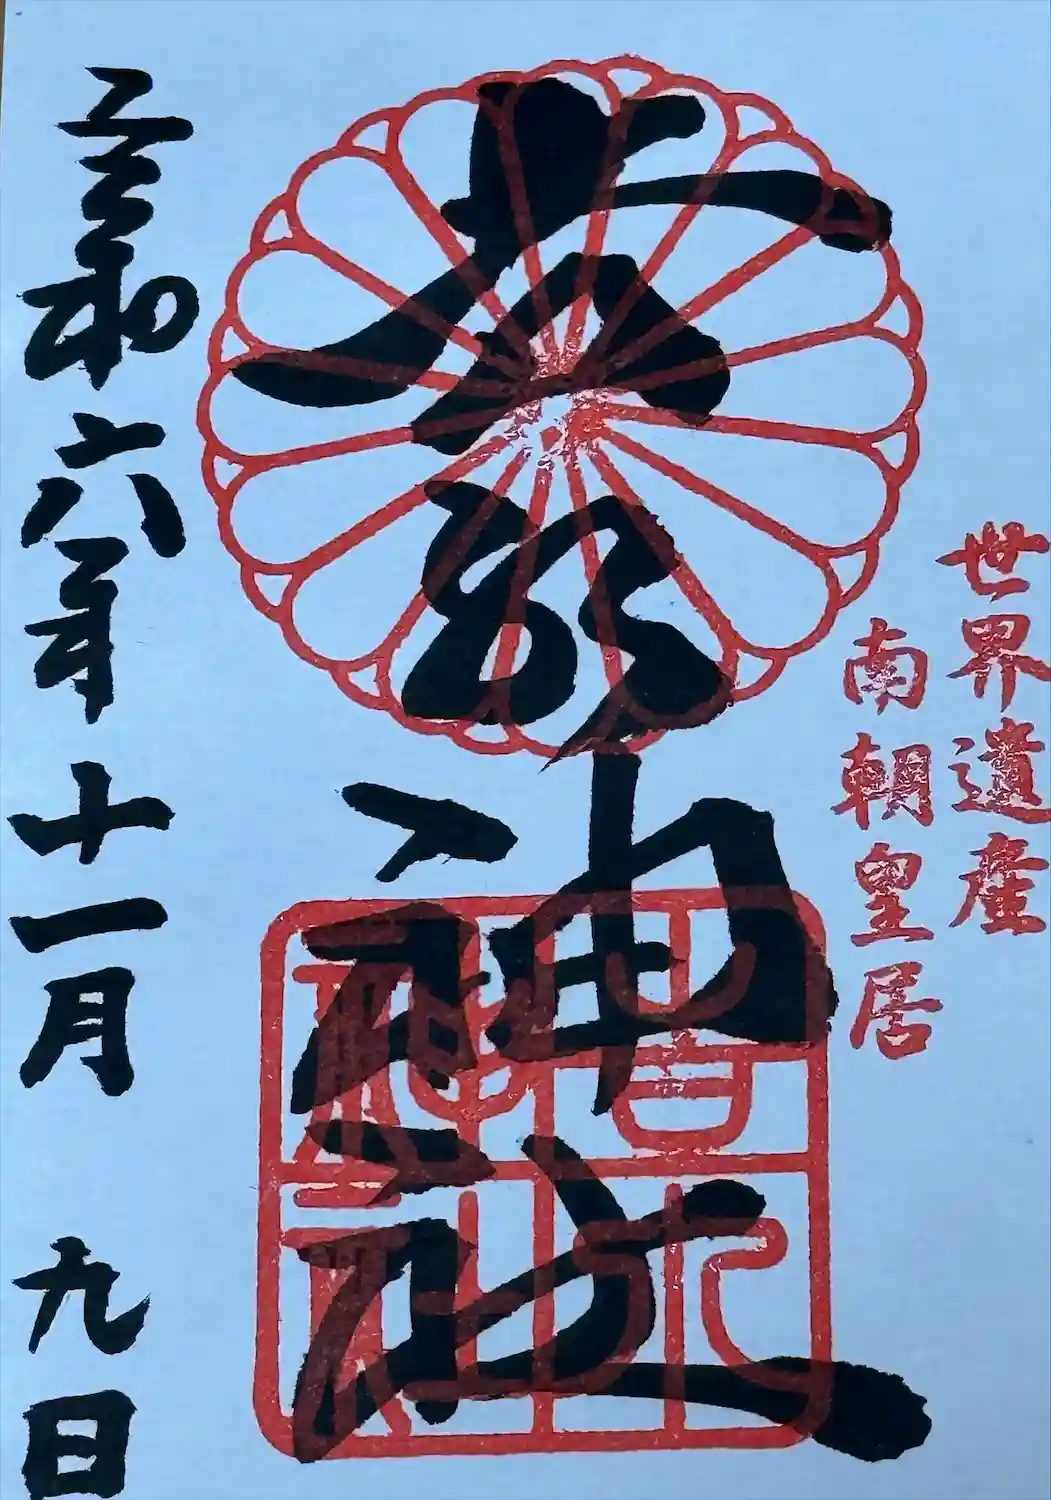 世界遺産
南朝皇居
吉水神社
令和六年十一月九日